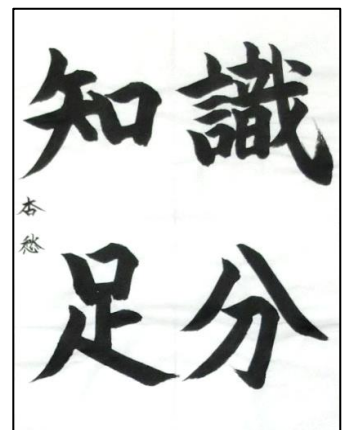 識分
知足
杏愁